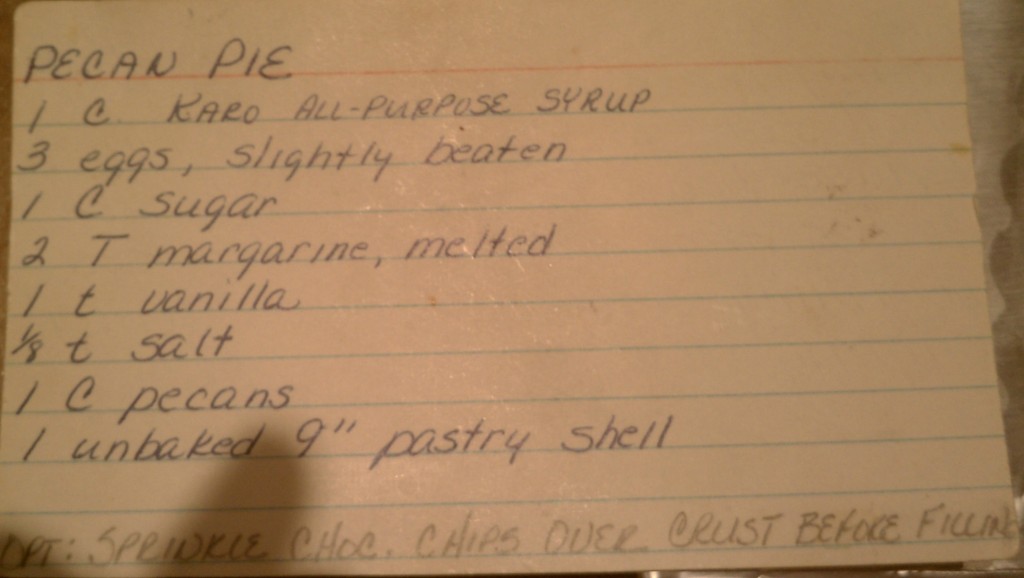 PECAN PIE
1 C. KARO ALL-PURPOSE SYRUP
3 eggs, slightly beaten
1 C sugar
2 T margarine, melted
1 t vanilla
⅛ t salt
1 C pecans
1 unbaked 9" pastry shell
OPT: SPRINKLE CHOC. CHIPS OVER CRUST BEFORE FILLING